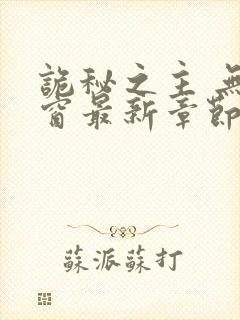 詭秘之主 無
窗最新章節
蘇派蘇打